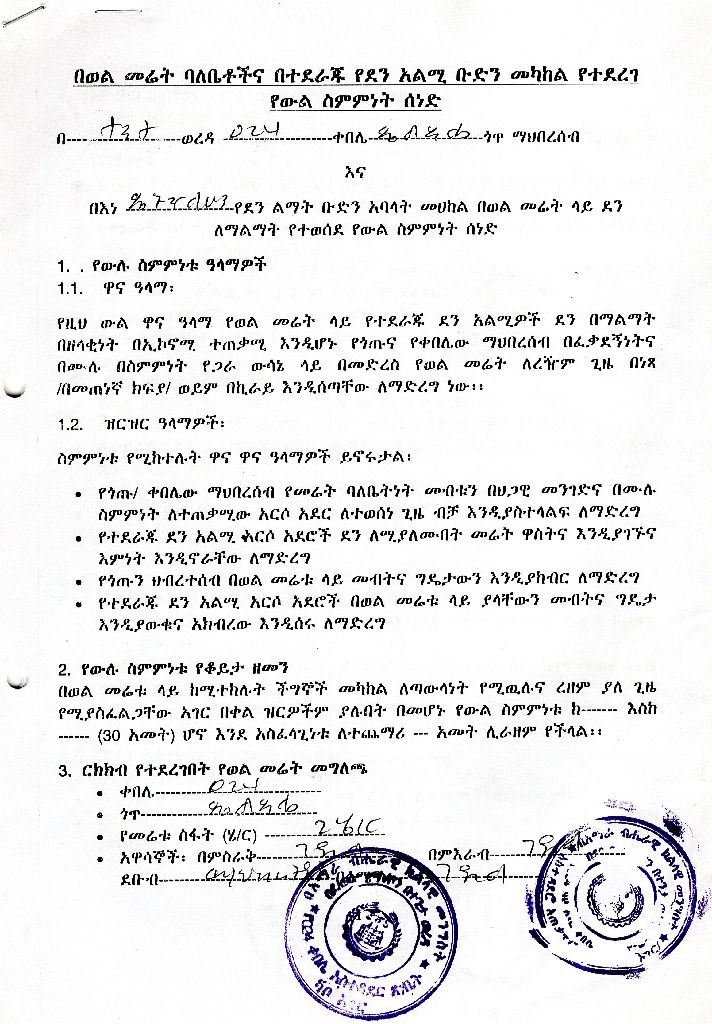 በወል መሬት ባለቤቶችና በተደራጁ የደን አልሚ ቡድን መካከል የተደረገ
የውል ስምምነት ሰነድ
በ---- ወረዳ ቀበሌ ጎዋ ማህበረሰብ
እና
በእነ የደን ልማት ቡድን አባላት መሀከል በወል መሬት ላይ ደን
ለማልማት የተወሰደ የውል ስምምነት ሰነድ
1. . የውሉ ስምምነቱ ዓላማዎች
1.1. ዋና ዓላማ፡
የዚህ ውል ዋና ዓላማ የወል መሬት ላይ የተደራጁ ደን አልሚዎች ደን በማልማት
በዘላቂነት በኢኮኖሚ ተጠቃሚ እንዲሆኑ የጎጡና የቀበሌው ማህበረሰብ በፈቃደኝነትና
በሙሉ በስምምነት የጋራ ውሳኔ ላይ በመድረስ የወል መሬት ለረዥም ጊዜ በነጻ
/በመጠነኛ ክፍያ/ ወይም በኪራይ እንዲሰጣቸው ለማድረግ ነው፡፡
1.2. ዝርዝር ዓላማዎች፡
ስምምነቱ የሚከተሉት ዋና ዋና ዓላማዎች ይኖሩታል፡
• የጎጡ/ ቀበሌው ማህበረሰብ የመሬት ባለቤትነት መብቱን በህጋዊ መንግድና በሙሉ
ስምምነት ለተጠቃሚው አርሶ አደር ለተወሰነ ጊዜ ብቻ እንዲያስተላልፍ ለማድረግ
• የተደራጁ ደን አልሚ አርሶ አደሮች ደን ለሚያለሙበት መሬት ዋስትና እንዲያገኙና
እምነት እንዲኖራቸው ለማድረግ
• የጎጡን ህብረተሰብ በወል መሬቱ ላይ መብትና ግዴታውን እንዲያከብር ለማድረግ
• የተደራጁ ደን አልሚ አርሶ አደሮች በወል መሬቱ ላይ ያላቸውን መብትና ግዴታ
እንዲያውቁና አክብረው እንዲሰሩ ለማድረግ
2. የውሉ ስምምነቱ የቆይታ ዘመን
በወል መሬቱ ላይ ከሚተከሉት ችግኞች መካከል ለጣውላነት የሚዉሉና ረዘም ያለ ጊዜ
የሚያስፈልጋቸው አገር በቀል ዝርዎችም ያሉበት በመሆኑ የውል ስምምነቱ ከ------- እስከ
------ (30 አመት) ሆኖ እንደ አስፈላጊነቱ ለተጨማሪ --- አመት ሊራዘም የችላል፡፡
3. ርክክብ የተደረገበት የወል መሬት መግለጫ
• ቀበሌ
• ጎዋ
• የመሬቱ ስፋት (ሄ/ር) 2 ሄ/ር
• አዋሳኞች፡ በምስራቅ በምእራብ
ደቡብ